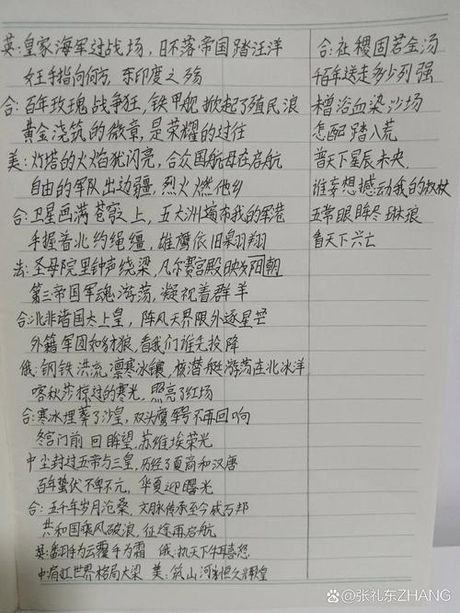 英:皇家海军过战场,日不落帝国踏汪洋
女王手指向何方,东印度之殇
合:百年玫瑰战争狂,铁甲舰掀起了殖民浪
黄金浇筑的徽章,是荣耀的过往
美:灯塔的火焰犹闪亮,合众国航母在启航
自由的军队出边疆,烈火燃他乡
合:卫星画满苍穹之上,五大洲城市我的军巷
手握着北约绳缰,雄鹰依旧翱翔
法:圣母院里钟声绕梁,凡尔赛宫殿映朝阳
第三帝国军魂游荡,凝视着群羊
合:北非诸国太上皇,阵风天界限外逐星芒
外籍军团和豺狼,看我们谁先投降
俄:钢铁洪流,凛寒冰镶,核潜艇游荡在北冰洋
喀秋莎掠过的寒光,照亮了红场
合:寒冰埋葬了沙皇,双头鹰军号不再回响
冬宫门前回眸望,苏维埃荣光
中:尘封过五帝与三皇,历经了夏商和汉唐
百年蛰伏不卑不亢,华夏迎曙光
合:五千年岁月沧桑,文脉传承至今咸万邦
共和国乘风破浪,征途再启航
英:翻手为云覆手为霜 俄:执天下牛耳喜怒
中:肩扛世界格局大梁 美:筑山河永恒久辉煌
合:社稷固若金汤
千百年送走多少列强
未曾浴血染沙场
怎配踏八荒
普天下星辰未央
谁妄想撼动我的权杖
五常眼眸冬琳琅
看天下兴亡
@张礼东ZHANG